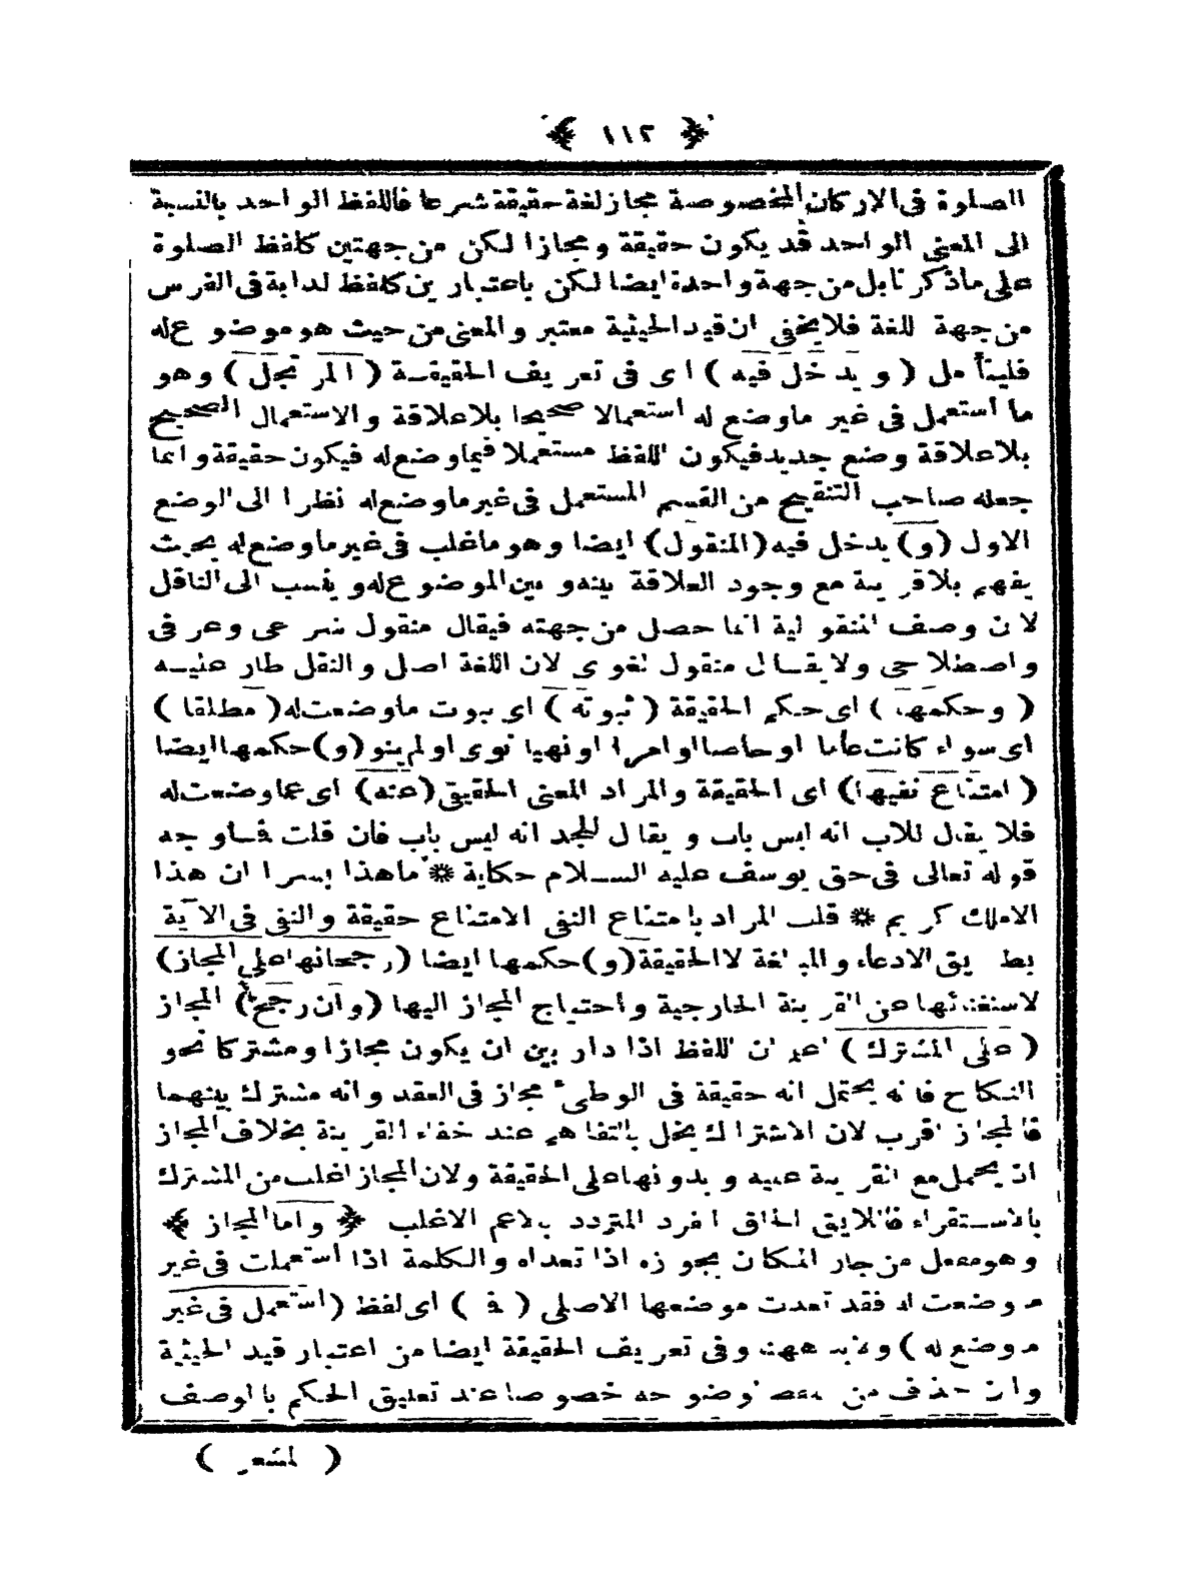 ﴿ ١١٢ ﴾
الصلوة فى الاركان المخصوصة مجاز لغة حقيقة شرعا فاللفظ الواحد بالنسبة
الى المعنى الواحد قد يكون حقيقة ومجازا لكن من جهتين كلفظ الصلوة
على ماذكرنا بل من جهة واحدة ايضا لكن باعتبارين كلفظ لدابة فى الفرس
من جهة للغة فلا يخفى ان قيد الحيثية معتبر والمعنى من حيث هو موضوع له
فليتأمل ( ويدخل فيه ) اى فى تعريف الحقيقة ( المرتجل ) وهو
ما استعمل فى غير ماوضع له استعمالا صحيحا بلاعلاقة والاستعمال الصحيح
بلاعلاقة وضع جديد فيكون اللفظ مستعملا فيماوضع له فيكون حقيقة وانما
جعله صاحب التنقيح من القسم المستعمل فى غير ماوضع له نظرا الى الوضع
الاول (و) يدخل فيه (المنقول) ايضا وهو ماغلب فى غير ماوضع له بحيث
يفهم بلاقرينة مع وجود العلاقة بينه وبين الموضوع له وينسب الى الناقل
لان وصف المنقولية انما حصل من جهته فيقال منقول شرعى وعرفى
واصطلاحى ولايقال منقول لغوى لان اللغة اصل والنقل طار عليه
( وحكمها ) اى حكم الحقيقة ( ثبوته ) اى ثبوت ماوضعت له ( مطلقا )
اى سواء كانت عاما اوخاصا اوامرا اونهيا نوى اولم ينو (و) حكمها ايضا
( امتناع نفيها ) اى الحقيقة والمراد المعنى الحقيقى (عنه) اى عماوضعت له
فلا يقال للاب انه ليس باب ويقال للجد انه ليس باب فان قلت فاوجه
قوله تعالى فى حق يوسف عليه السلام حكاية * ماهذا بشرا ان هذا
الاملك كريم * قلت المراد بامتناع النفى الامتناع حقيقة والنفى فى الآية
بطريق الادعاء والمبالغة لاالحقيقة (و) حكمها ايضا (رجحانها على المجاز)
لاستغنائها عن القرينة الخارجية واحتياج المجاز اليها (وان رجح) المجاز
( على المشترك ) اعلم ان اللفظ اذا دار بين ان يكون مجازا ومشتركا نحو
النكاح فانه يحتمل انه حقيقة فى الوطىء مجاز فى العقد وانه مشترك بينهما
فالمجاز اقرب لان الاشتراك يخل بالتفاهم عند خفاء القرينة بخلاف المجاز
اذ يحمل مع القرينة عليه وبدونها على الحقيقة ولان المجاز اغلب من المشترك
بالاستقراء فاللايق الحاق الفرد المتردد بالاعم الاغلب ﴿ واما المجاز ﴾
وهو مفعل من جاز المكان يجوزه اذا تعداه والكلمة اذا استعملت فى غير
موضعت له فقد تعدت موضعها الاصلى ( فـ ) اى لفظ (استعمل فى غير
موضع له ) ولابد ههنا وفى تعريف الحقيقة ايضا من اعتبار قيد الحيثية
وان حذف من اللفظ لوضوحه خصوصا عند تعليق الحكم بالوصف
( المشعر )